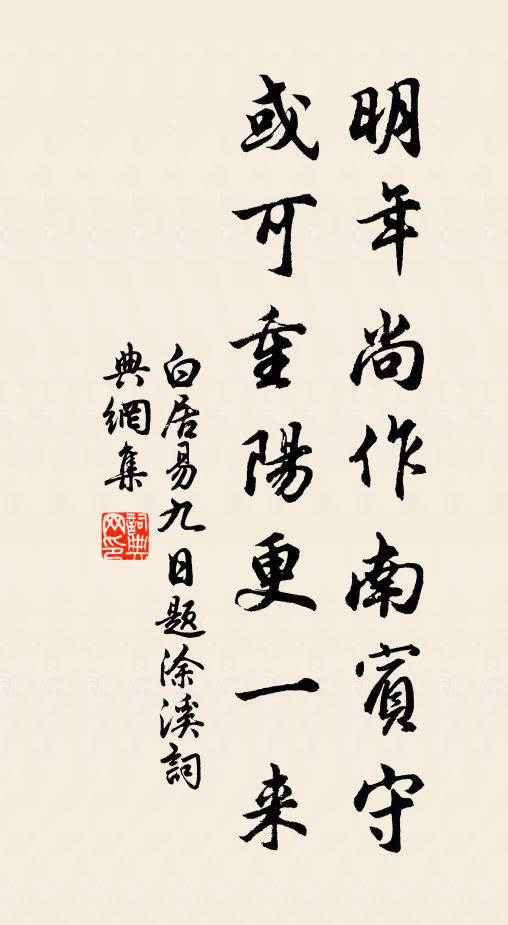 明年尚作南賓守
或可重陽更一来
白居易九日题涂溪詞
典網集
詞典网印